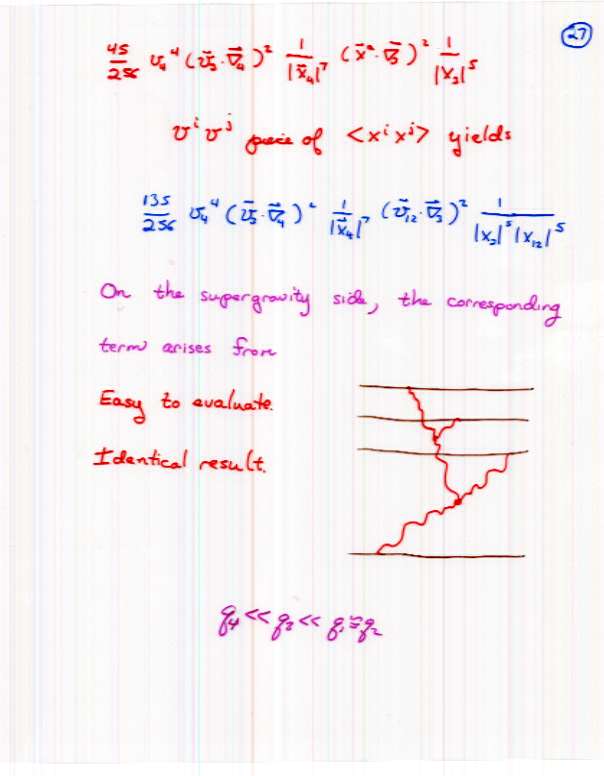 27
45/256 v₄⁴ (v⃗₃·∇⃗₄)² 1/|x⃗₄|⁷ (x⃗²·∇⃗₃)² 1/|x₃|⁵
vⁱ vʲ piece of <xⁱxʲ> yields
135/256 v₄⁴ (v⃗₃·∇⃗₄)² 1/|x⃗₄|⁷ (v⃗₁₂·∇⃗₃)² 1/|x₃|⁵|x₁₂|⁵
On the supergravity side, the corresponding
term arises from
Easy to evaluate.
Identical result.
q₄ << q₃ << q₁ ≅ q₂